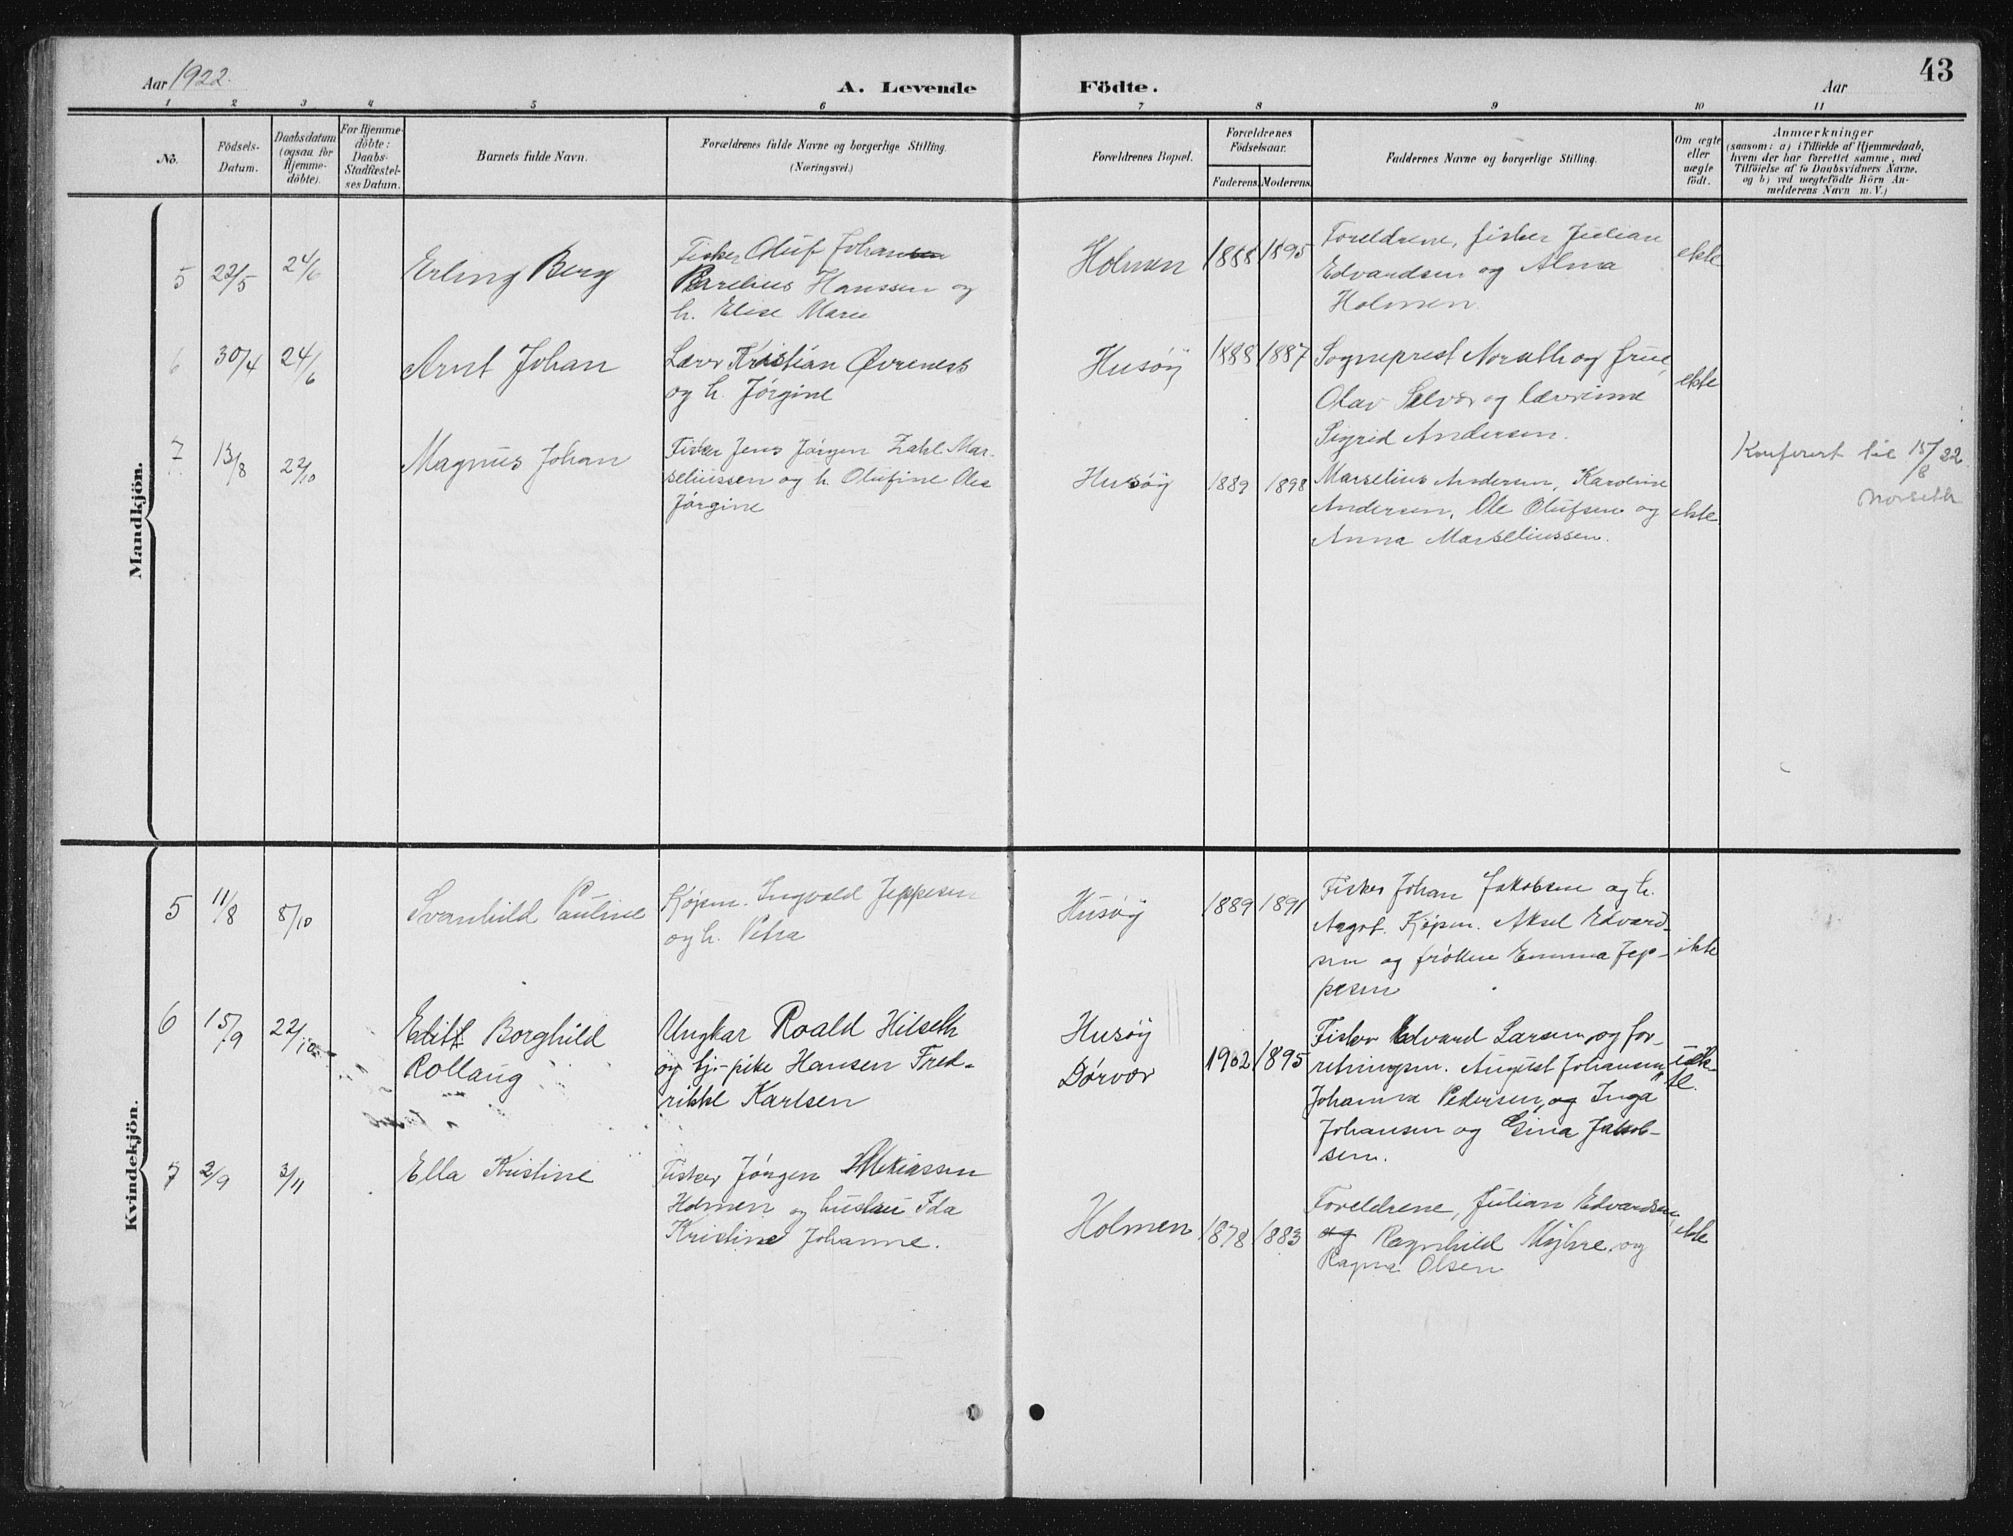 Aar 1922.
A. Levende Födte.
Aar
43
1 2 3 4 5 6 7 8 9 10 11
No.
Födsels-
Datum.
Daabsdatum
(ogsaa for
Hjemme-
döbte).
For Hjemme-
döbte:
Daabs-
Stadfæstel-
ses Datum.
Barnets fulde Navn.
Forældrenes fulde Navne og borgerlige Stilling.
(Næringsvei.)
Forældrenes Bopæl.
Forældrenes
Födselsaar.
Faderens.
Moderens.
Faddernes Navne og borgerlige Stilling.
Om ægte
eller
uægte
födt.
Anmærkninger
(saasom: a) i Tilfælde af Hjemmedaab,
hvem der har forrettet samme, med
Tilföielse af to Daabsvidners Navne.
og b) ved uægtefödte Börn An-
melderens Navn m. V.)
Mandkjön.
5 22/5 24/6
Erling Berg
Fisker Oluf Johansen
Parelius Hanssen og
h. Elise Marie
Holmen
1888 1895
Foreldrene, fisker Julian
Edvardsen og Alma
Holmen.
ekte
6 30/4 24/6
Arnt Johan
Lærer Kristian Øvreness
og h. Jørgine
Husøy
1888 1887
Sogneprest Norseth og frue,
Olav Selvær og lærerinne
Sigrid Andersen.
ekte
7 13/8 22/10
Magnus Johan
Fisker Jens Jørgen Zahl Mar-
seliussen og h. Olufine Olea
Jørgine
Husøy
1889 1898
Marselius Andersen, Karoline
Andersen, Ole Olufsen og
Anna Marseliussen.
ekte
Konferert til 15/8 22
Norseth
Kvindekjön.
5 11/8 8/10
Svanhild Pauline
Kjøpm. Ingvald Jeppesen
og h. Petra
Husøy
1889 1891
Fisker Johan Jakobsen og h.
Aagot. Kjøpm. Aksel Edvard-
sen og frøken Emma Jep-
pesen
ekte
6 15/9 22/10
Edith Borghild
Rollaug
Ungkar Roald Hilseth
og tj-pike Hansen Fred-
rikke Karlsen
Husøy
Dørvær
1902 1895
Fisker Edvard Larsen, og for-
retningsm. August Johansen,
Johanna Pedersen, og Inga
Johansen og Gina Jakob-
sen.
uek-
te.
7 2/9 3/11
Ella Kristine
Fisker Jørgen Mekiassen
Holmen og hustru Ida
Kristine Johanne.
Holmen
1878 1883
Foreldrene, Julian Edvardsen,
og Ragnhild Myhre, og
Ragna Olsen
ekte